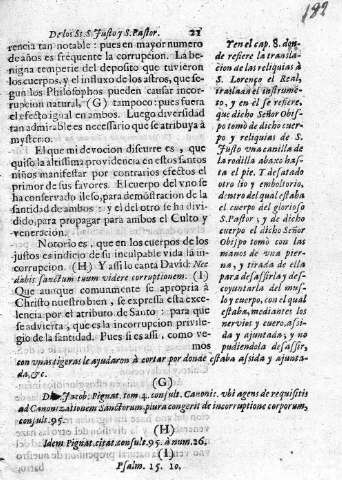 189
De los SS. S. Justo y S. Pastor. 21
rencia tan notable: pues en mayor numero
de años es fréquente la corrupcion. La be-
nigna temperie del deposito que tuvieron
los cuerpos, y el influxo de los astros, que se-
gun los Philosophos pueden causar incor-
rupcion natural, (G) tampoco: pues fuera
el efecto igual en ambos. Luego diversidad
tan admirable es necesario que se atribuya à
mysterio.
El que mi devocion discurre es, que
quiso la altissima providencia en estos santos
niños manifestar por contrarios efectos el
primor de sus favores. El cuerpo del vno se
ha conservado ileso, para demostracion de la
santidad de ambos: y el del otro se ha divi-
dido, para propagar para ambos el Culto y
veneracion.
Notorio es, que en los cuerpos de los
justos es indicio de su inculpable vida la in-
corrupcion. (H) Y assi lo canta David: Nec
dabis sanctum tuum videre corruptionem. (I)
Que aunque comunmente se apropria à
Christo nuestro bien, se expressa esta exce-
lencia por el atributo de Santo: para que
se advierta, que es la incorrupcion privile-
gio de la santidad. Pues si es assi, como ve-
mos
Y en el cap. 8. don-
de refiere la transla-
cion de las reliquias à
S. Lorenço el Real,
traslada el instrumẽ-
to, y en èl se refiere,
que dicho Señor Obis-
po tomò de dicho cuer-
po y reliquias de S.
Justo vna canilla de
la rodilla abaxo has-
ta el pie. Y desatado
otro lio y emboltorio,
dentro del qual estaba
el cuerpo del glorioso
S. Pastor, y de dicho
cuerpo el dicho Señor
Obispo tomò con las
manos de vna pier-
na, y tirada de ella
para desasirla y des-
coyuntarla del mus-
lo y cuerpo, con el qual
estaba, mediantes los
nervios y cuero, asi-
da y ajuntada, y no
pudiendola desasir,
con vnas tigeras le ajudaron à cortar por donde estaba assida y ajunta-
da, &c.
(G)
D. Jacob. Pignat. tom. 4. consult. Canonic. vbi agens de requisitis
ad Canonizationem Sanctorum, plura congerit de incorruptione corporum,
consult. 95.
(H)
Idem Pignat. citat. consult. 95. à num. 26.
(I)
Psalm. 15. 10.